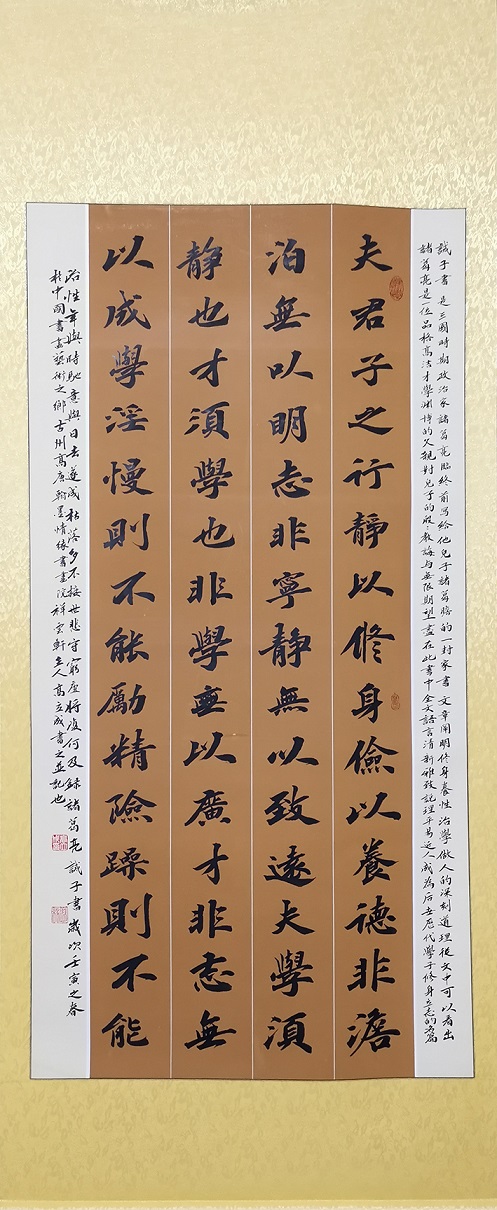 誡子書是三國時期政治家諸葛亮臨終前写給他兒子諸葛瞻的一封家書文章闡明修身養性治學做人的深刻道理從文中可以看出
諸葛亮是一位品格高洁才學渊博的父親對兒子的殷殷教誨与無限期望盡在此書中全文語言清新雅致説理平易近人成為后世歷代學子修身立志的名篇
夫君子之行靜以修身儉以養德非澹
泊無以明志非寧静無以致遠夫學須
静也才須學也非學無以廣才非志無
以成學淫慢則不能勵精險躁則不能
治性年與時馳意與日去遂成枯落多不接世悲守窮廬將復何及錄諸葛亮誡子書歲次壬寅之春
於中國書畫藝術之鄉古州高唐翰墨情緣書畫院祥雲軒主人高立成書之並記也